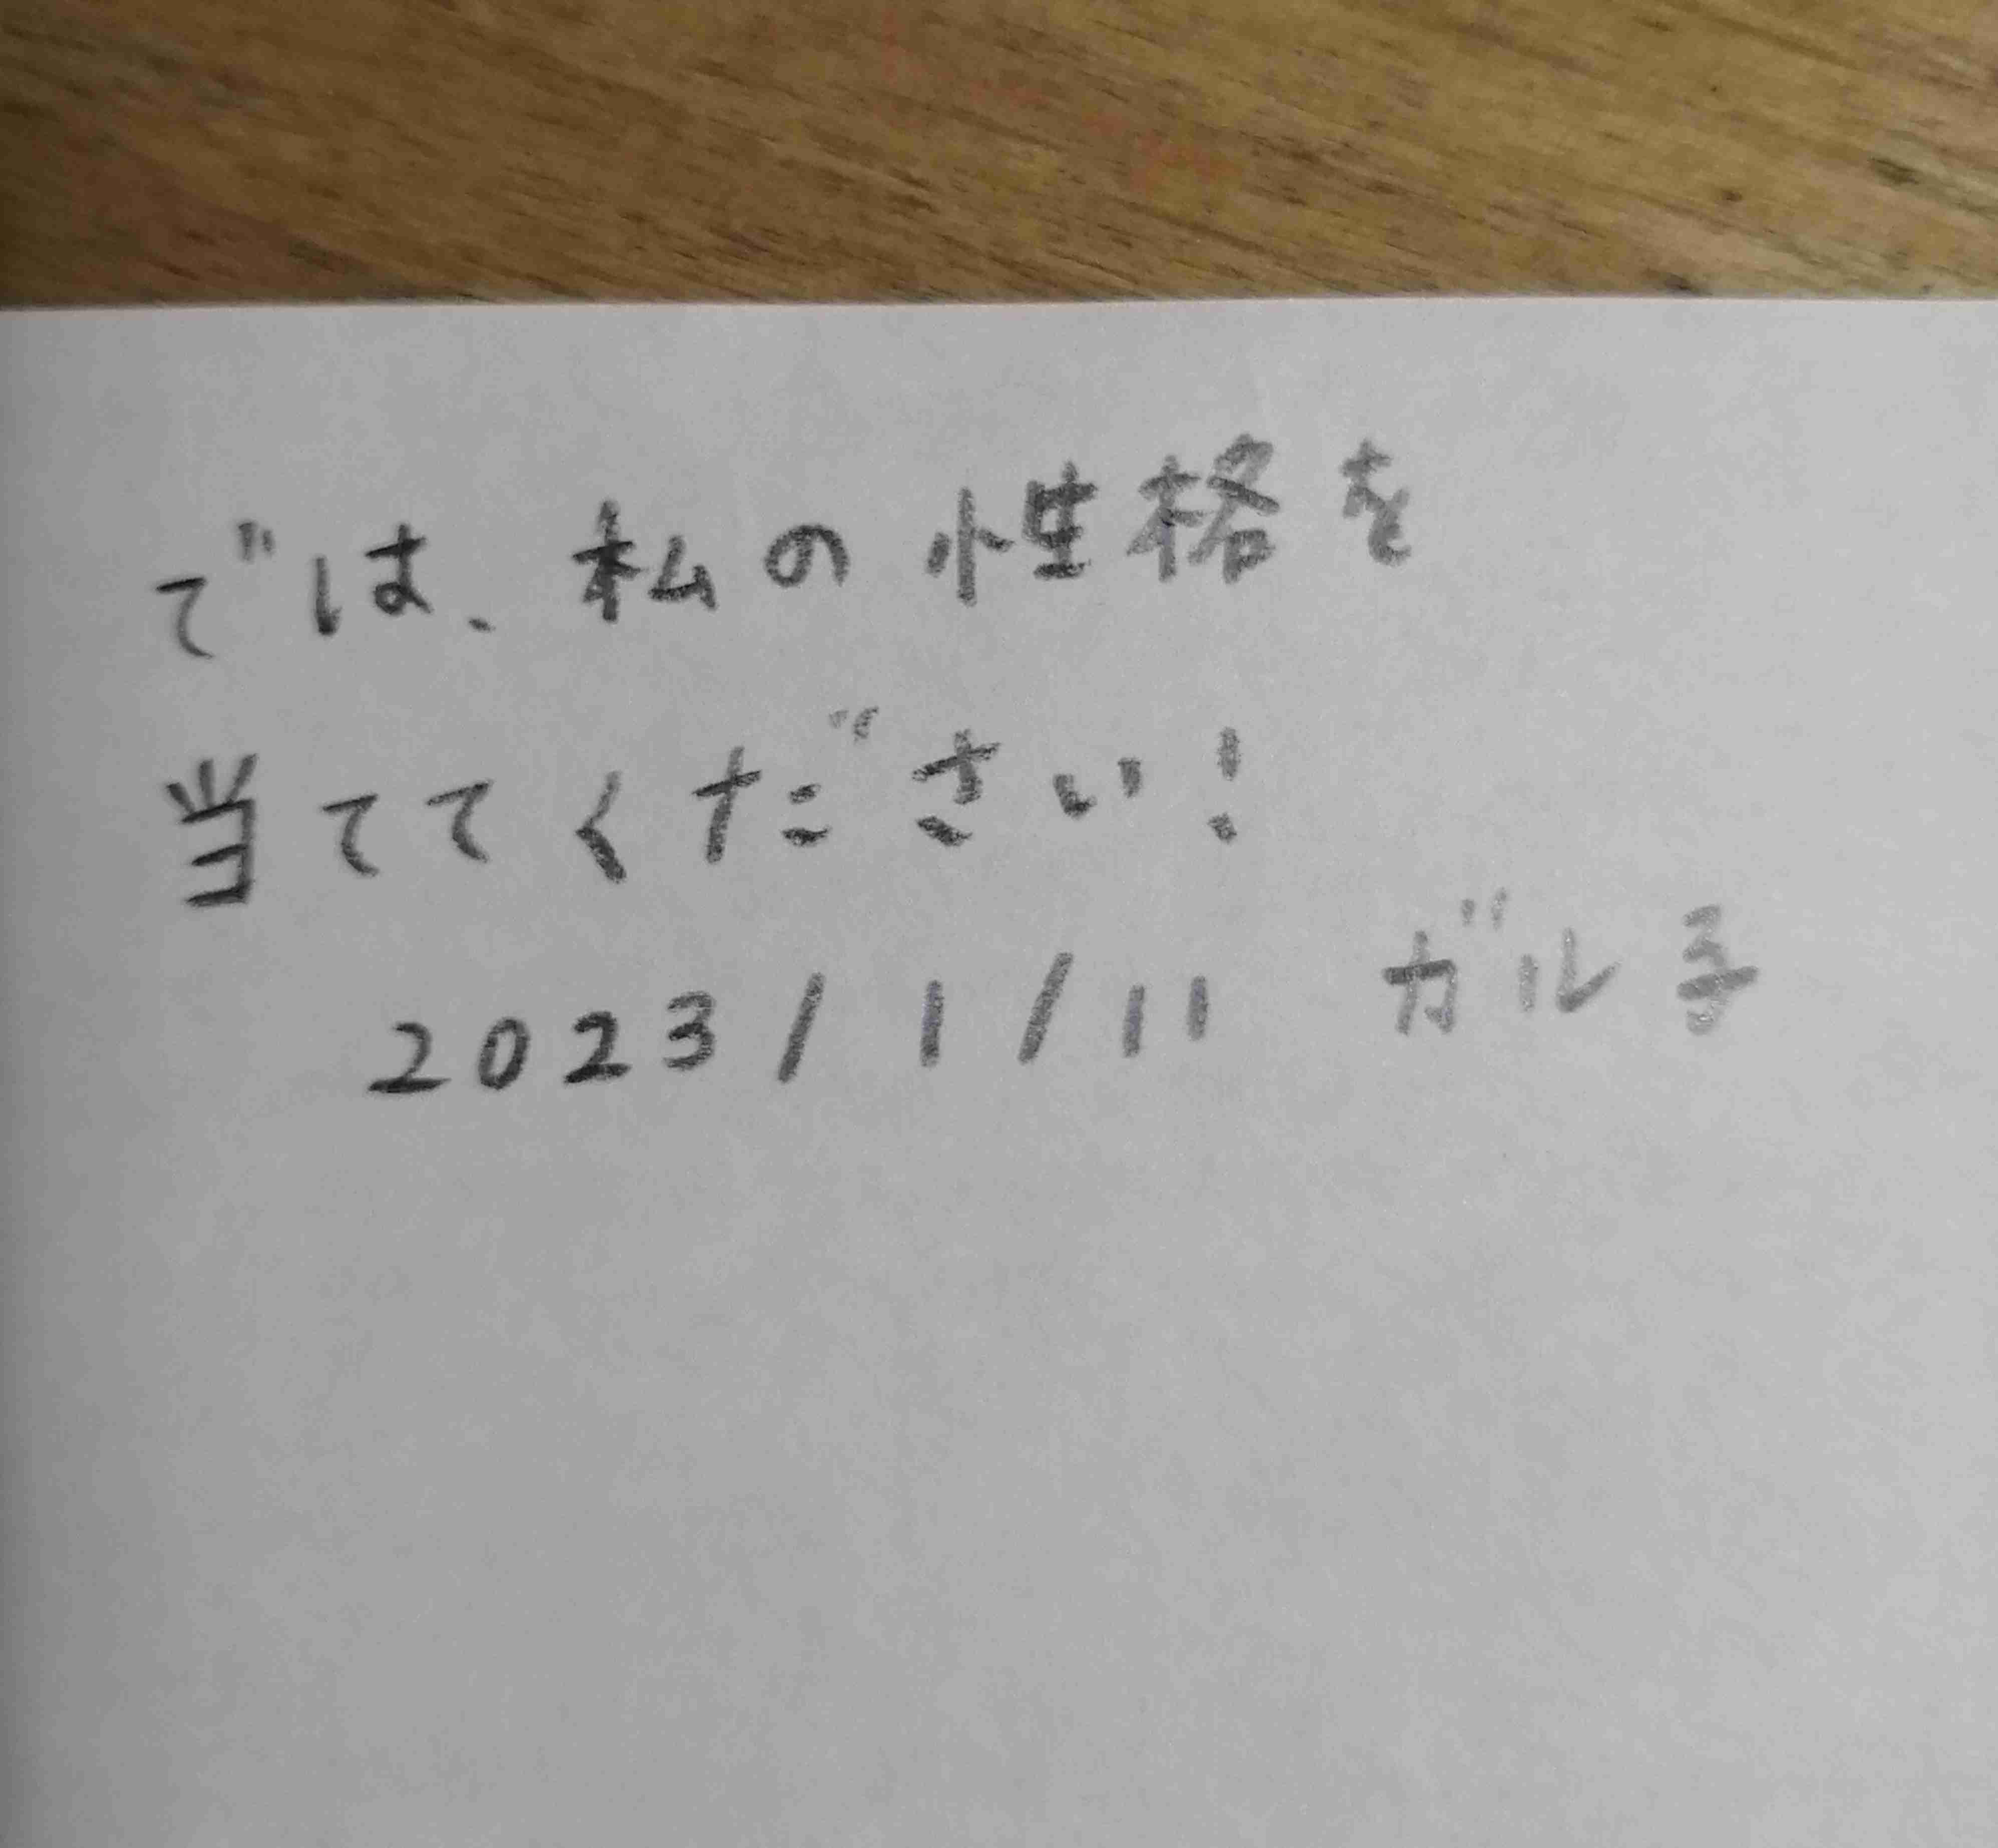 では、私の性格を
当ててください!
2023/1/11 ガル子